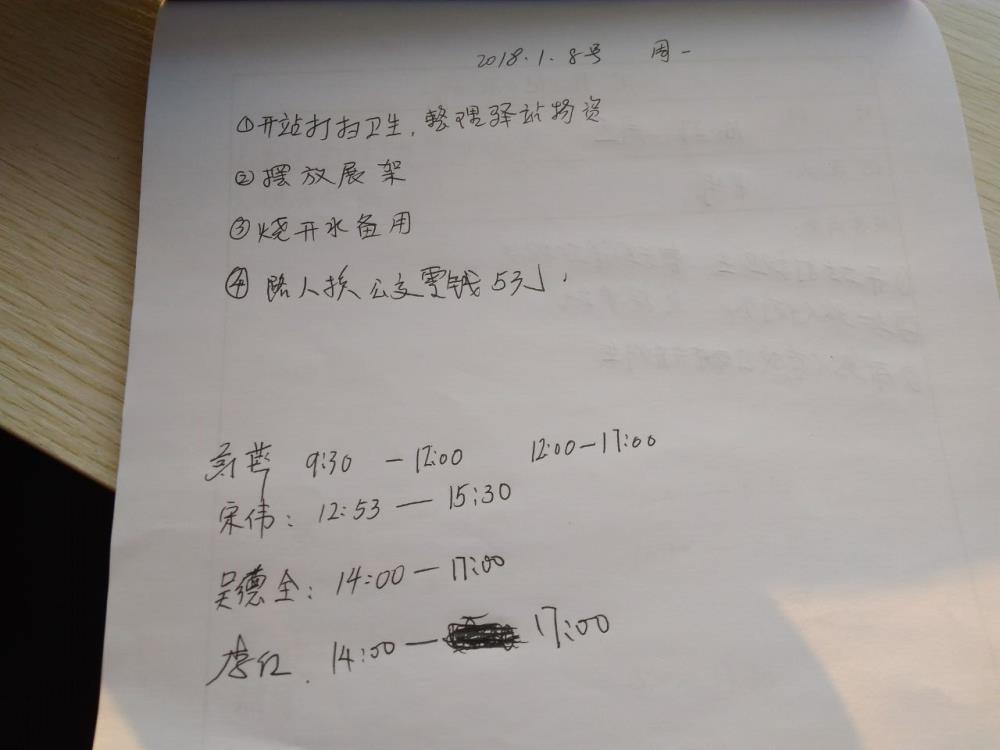 2018.1.8号 周一
①开站打扫卫生,整理驿站物资
②摆放展架
③烧开水备用
④路人换公交零钱5元.
9:30 —12:00 12:00—17:00
宋伟: 12:53 — 15:30
吴德全: 14:00 — 17:00
李红. 14:00 — 17:00